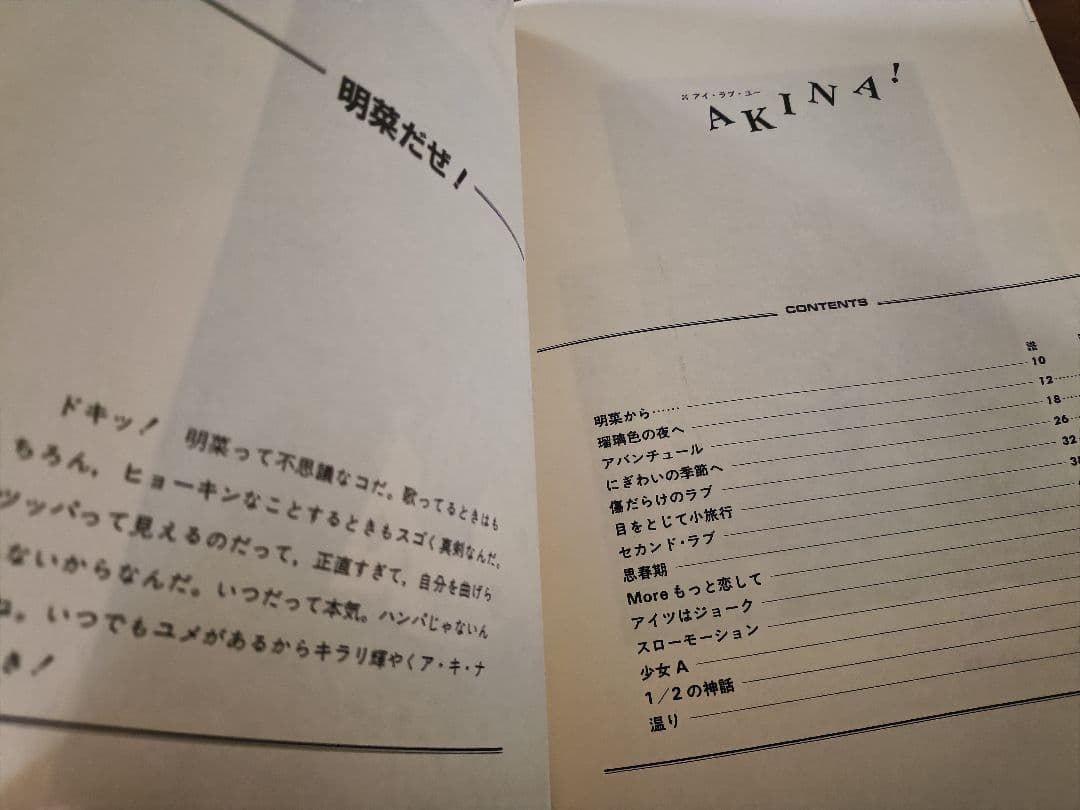 明菜だぜ!
ドキッ! 明菜って不思議なコだ。歌ってるときはも
もちろん,ヒョーキンなことするときもスゴく真剣なんだ。
ツッパって見えるのだって,正直すぎて,自分を曲げら
ないからなんだ。いつだって本気。ハンパじゃないん
ね。いつでもユメがあるからキラリ輝やくア・キ・ナ
き!
アイ・ラブ・ユー
AKINA!
CONTENTS
譜
明菜から…… 10
瑠璃色の夜へ 12
アバンチュール 18
にぎわいの季節へ 26
傷だらけのラブ 32
目をとじて小旅行
セカンド・ラブ
思春期
Moreもっと恋して
アイツはジョーク
スローモーション
少女A
1/2の神話
温り